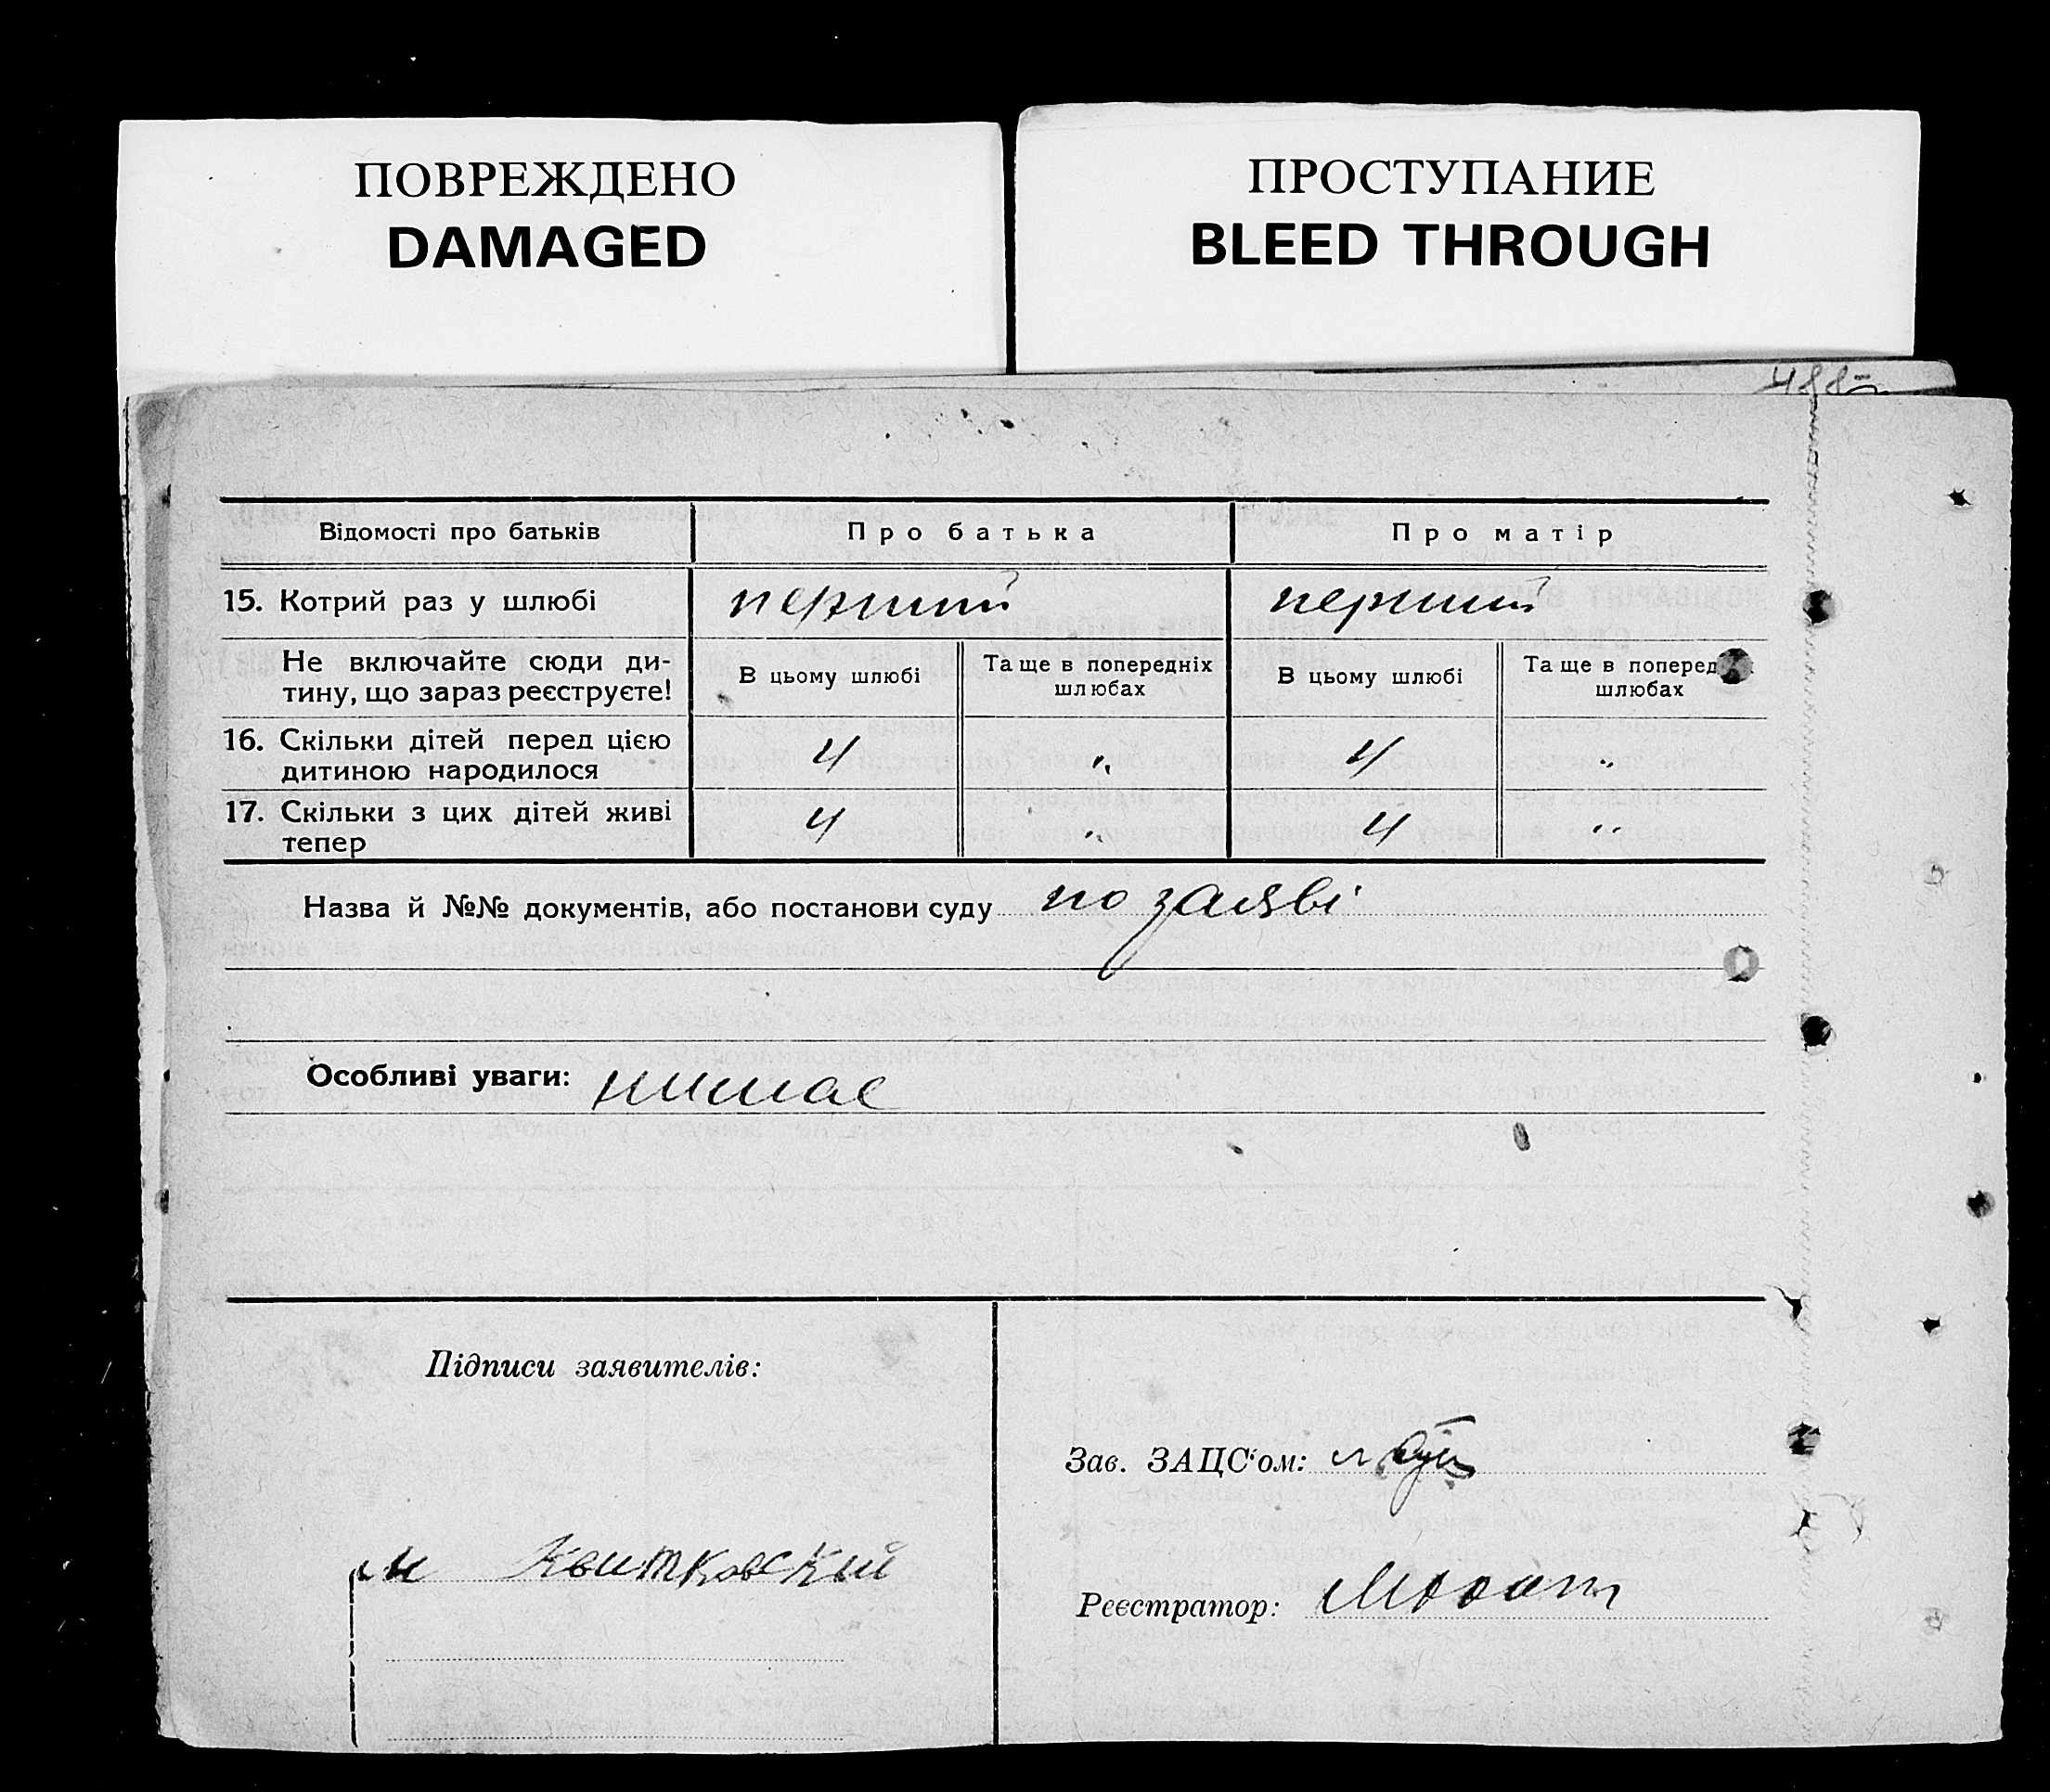 ПОВРЕЖДЕНО
DAMAGED
ПРОСТУПАНИЕ
BLEED THROUGH
488
Відомості про батьків
Про батька
Про матір
15. Котрий раз у шлюбі
перший
перший
Не включайте сюди ди-
тину, що зараз реєструєте!
В цьому шлюбі
Та ще в попередніх
шлюбах
В цьому шлюбі
Та ще в поперед
шлюбах
16. Скільки дітей перед цією
дитиною народилося
4
„
4
„
17. Скільки з цих дітей живі
тепер
4
„
4
„
Назва й №№ документів, або постанови суду по заяві
Особливі уваги: нимає
Підписи заявителів:
м Квитковский
Зав. ЗАЦС‘ом:
Реєстратор: